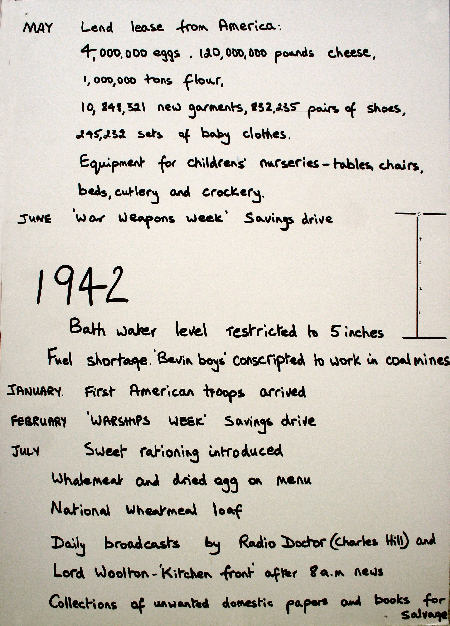 MAY Lend lease from America:
4,000,000 eggs . 120,000,000 pounds cheese,
1,000,000 tons flour,
10,848,321 new garments, 832,235 pairs of shoes,
245,232 sets of baby clothes.
Equipment for childrens' nurseries - tables, chairs,
beds, cutlery and crockery.
JUNE 'War Weapons Week' Savings drive
1942
Bath water level restricted to 5 inches
Fuel shortage. 'Bevin boys' conscripted to work in coal mines
JANUARY. First American troops arrived
FEBRUARY 'WARSHIPS WEEK' Savings drive
JULY Sweet rationing introduced
Whalemeat and dried egg on menu
National Wheatmeal loaf
Daily broadcasts by Radio Doctor (Charles Hill) and
Lord Woolton - 'Kitchen front' after 8 a.m news
Collections of unwanted domestic papers and books for
Salvage